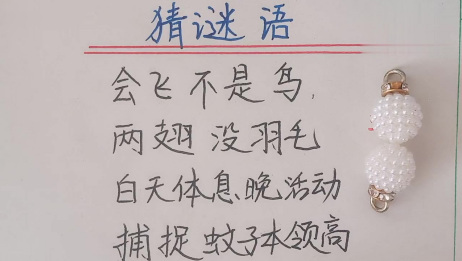 猜谜语
会飞不是鸟,
两翅没羽毛
白天体息晚活动
捕捉蚊子本领高